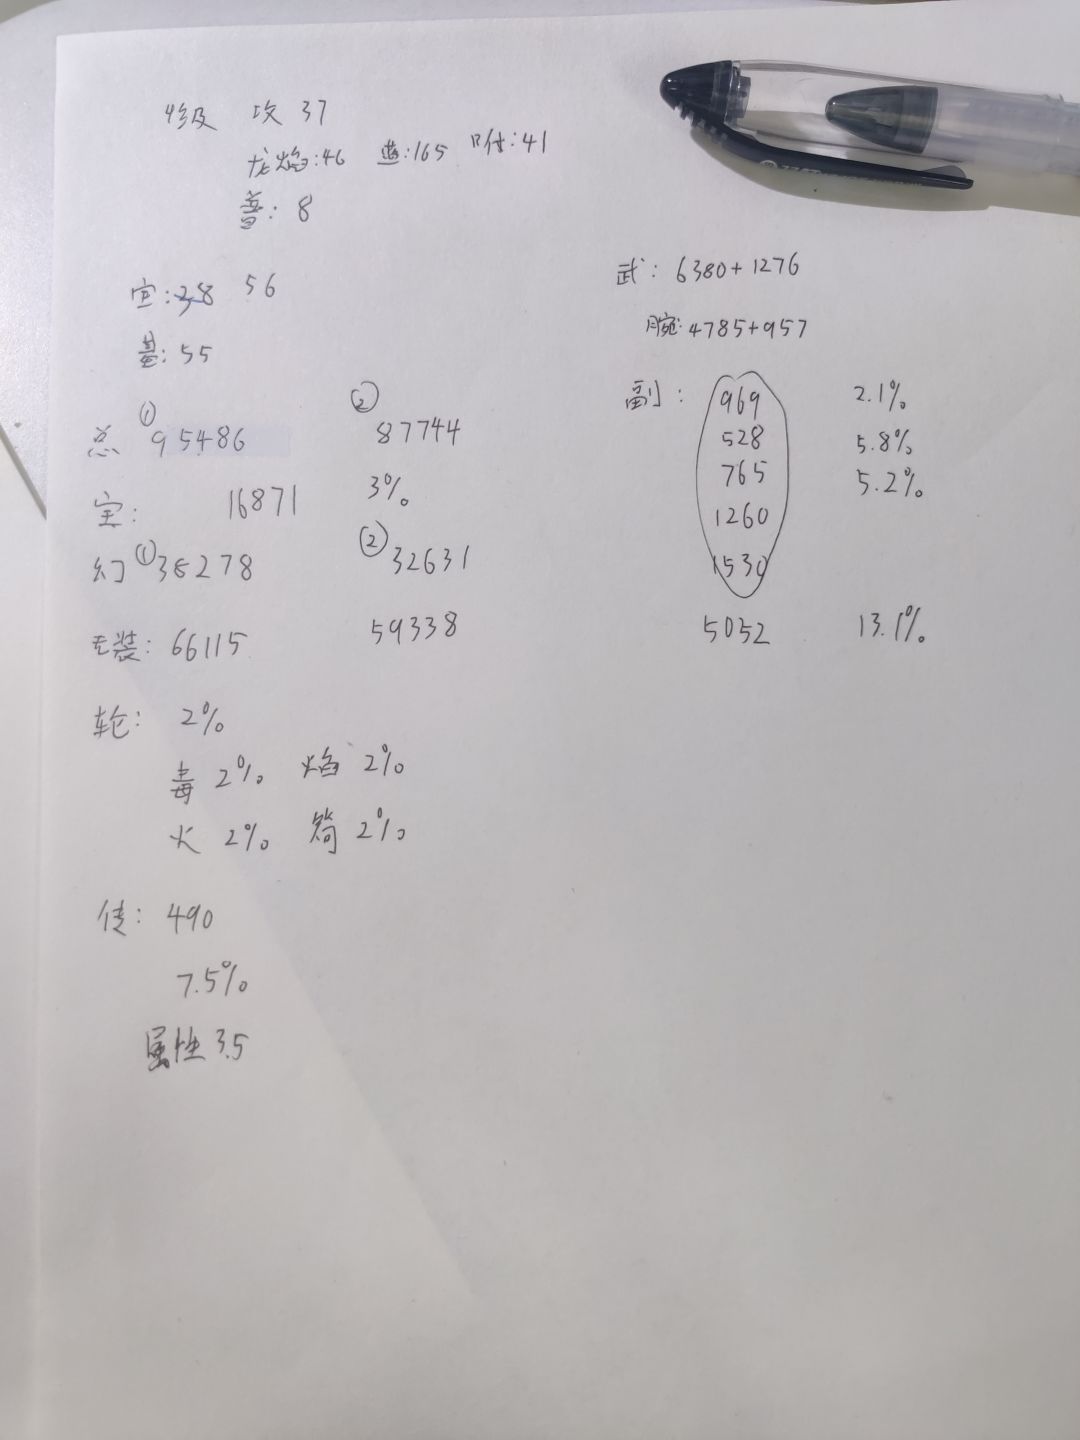 4级 攻 37
龙焰:46 进:165 附:41
普: 8
宝:38 56
基: 55
武: 6380+1276
腕: 4785+957
副: 969 2.1%
528 5.8%
765 5.2%
1260
1530
5052 13.1%
总 ①95486 ②87744
宝: 16871 3%
幻 ①35278 ②32631
无装: 66115 59338
轮: 2%
毒 2% 焰 2%
火 2% 简 2%
传: 490
7.5%
属性 3.5